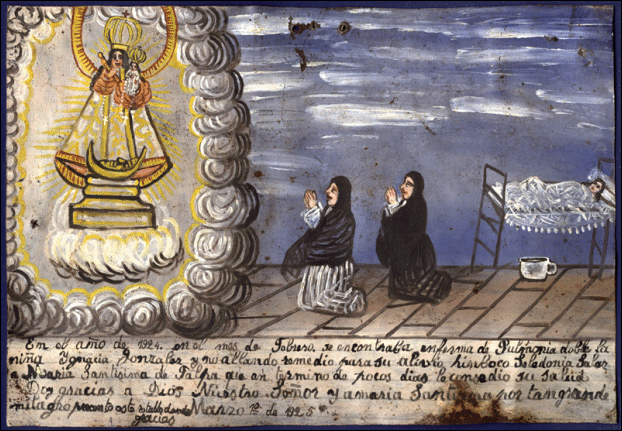 En el año de 1924. en el mes de Febrero se encontraba enferma de Pulmonia doble la
niña Ygnacia Gonzalez y no allando remedio para su alivio Seledonia Salaz
a Maria Santisima de Talpa que en termino de pocos dias le consedio su salud
Doy gracias a Dios Nuestro Señor y a maria Santisima por tan grande
milagro presento este retablo dando Marzo 1º de 1925
gracias